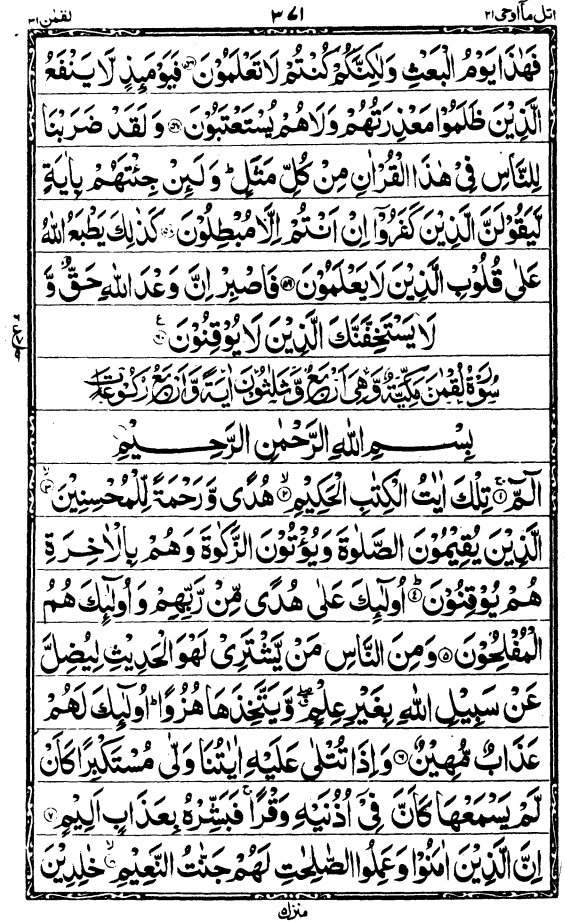 اتل ماۤ اوحی ٢١ ٣٧١ لقمٰن ٣١
فَهٰذَا يَوْمُ الْبَعْثِ وَلٰكِنَّكُمْ كُنْتُمْ لَا تَعْلَمُوْنَ ﴿٥٦﴾ فَيَوْمَئِذٍ لَّا يَنْفَعُ
الَّذِيْنَ ظَلَمُوْا مَعْذِرَتُهُمْ وَلَا هُمْ يُسْتَعْتَبُوْنَ ﴿٥٧﴾ وَلَقَدْ ضَرَبْنَا
لِلنَّاسِ فِيْ هٰذَا الْقُرْاٰنِ مِنْ كُلِّ مَثَلٍ ؕ وَلَئِنْ جِئْتَهُمْ بِاٰيَةٍ
لَّيَقُوْلَنَّ الَّذِيْنَ كَفَرُوْۤا اِنْ اَنْتُمْ اِلَّا مُبْطِلُوْنَ ﴿٥٨﴾ كَذٰلِكَ يَطْبَعُ اللّٰهُ
عَلٰى قُلُوْبِ الَّذِيْنَ لَا يَعْلَمُوْنَ ﴿٥٩﴾ فَاصْبِرْ اِنَّ وَعْدَ اللّٰهِ حَقٌّ وَّ
لَا يَسْتَخِفَّنَّكَ الَّذِيْنَ لَا يُوْقِنُوْنَ ﴿٦٠﴾ ع
سُوْرَةُ لُقْمٰنَ مَكِّيَّةٌ وَّهِىَ اَرْبَعٌ وَّثَلٰثُوْنَ اٰيَةً وَّاَرْبَعُ رُكُوْعَاتٍ
بِسْمِ اللّٰهِ الرَّحْمٰنِ الرَّحِيْمِ
الٓمّٓ ﴿١﴾ تِلْكَ اٰيٰتُ الْكِتٰبِ الْحَكِيْمِ ﴿٢﴾ هُدًى وَّرَحْمَةً لِّلْمُحْسِنِيْنَ ﴿٣﴾
الَّذِيْنَ يُقِيْمُوْنَ الصَّلٰوةَ وَيُؤْتُوْنَ الزَّكٰوةَ وَهُمْ بِالْاٰخِرَةِ
هُمْ يُوْقِنُوْنَ ﴿٤﴾ اُولٰٓئِكَ عَلٰى هُدًى مِّنْ رَّبِّهِمْ وَاُولٰٓئِكَ هُمُ
الْمُفْلِحُوْنَ ﴿٥﴾ وَمِنَ النَّاسِ مَنْ يَّشْتَرِيْ لَهْوَ الْحَدِيْثِ لِيُضِلَّ
عَنْ سَبِيْلِ اللّٰهِ بِغَيْرِ عِلْمٍ ۖ وَّيَتَّخِذَهَا هُزُوًا ؕ اُولٰٓئِكَ لَهُمْ
عَذَابٌ مُّهِيْنٌ ﴿٦﴾ وَاِذَا تُتْلٰى عَلَيْهِ اٰيٰتُنَا وَلّٰى مُسْتَكْبِرًا كَاَنْ
لَّمْ يَسْمَعْهَا كَاَنَّ فِيْۤ اُذُنَيْهِ وَقْرًا ۚ فَبَشِّرْهُ بِعَذَابٍ اَلِيْمٍ ﴿٧﴾
اِنَّ الَّذِيْنَ اٰمَنُوْا وَعَمِلُوا الصّٰلِحٰتِ لَهُمْ جَنّٰتُ النَّعِيْمِ ﴿٨﴾ خٰلِدِيْنَ
منزل ٥